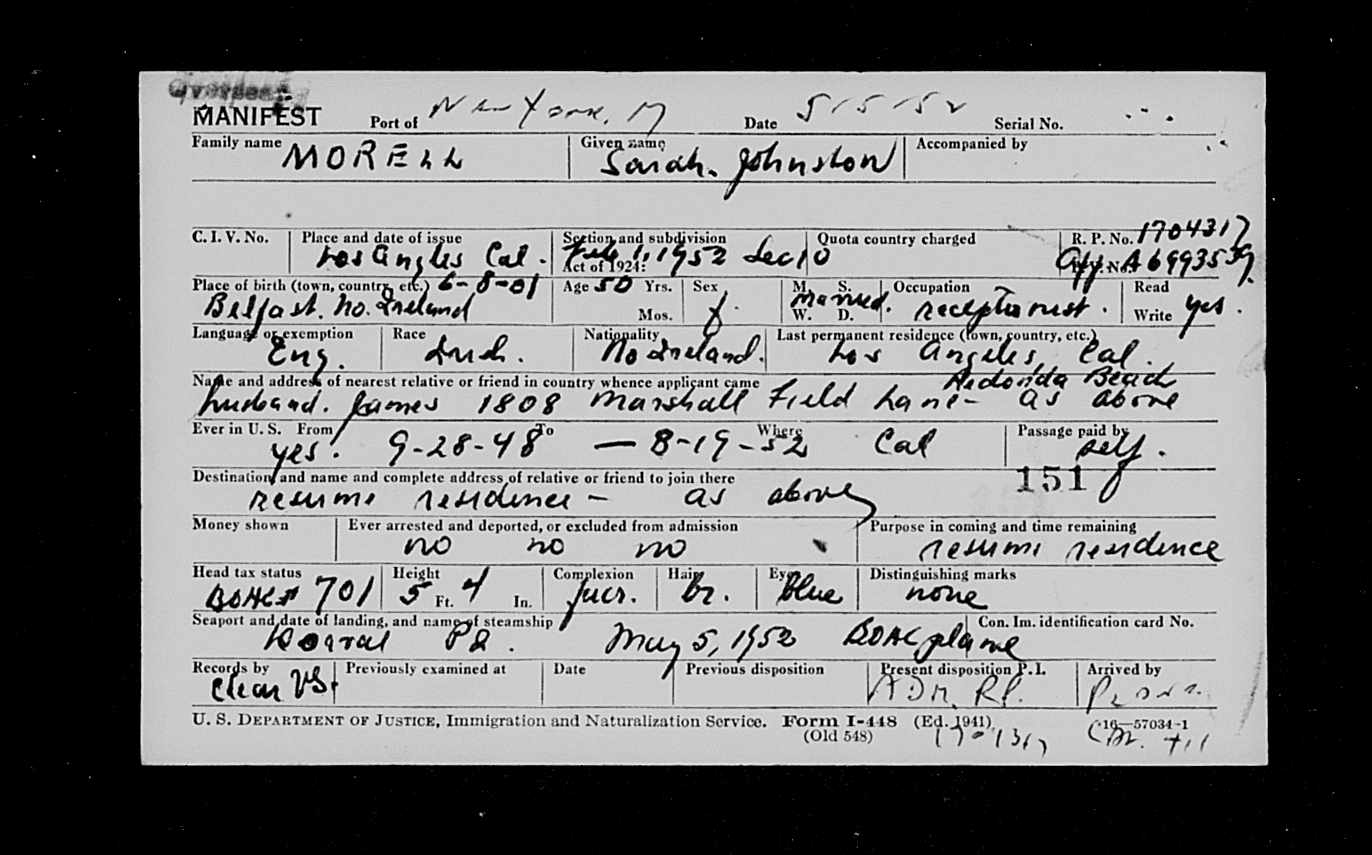 MANIFEST Port of New York, N Date 5/5/52 Serial No.
Family name MORELL Given name Sarah. Johnston Accompanied by
C. I. V. No. Place and date of issue Los Angles Cal. Section and subdivision Act of 1924: Feb 1, 1952 Sec 10 Quota country charged R. P. No. 1704317
App. A6993539
Place of birth (town, country, etc.) 6-8-01 Belfast. No. Ireland Age 50 Yrs. Mos. Sex f. M. S. W. D. Married. Occupation receptionist. Read Write yes.
Language or exemption Eng. Race Irish. Nationality No Ireland. Last permanent residence (town, country, etc.) Los Angeles, Cal.
Name and address of nearest relative or friend in country whence applicant came Redondo Beach
husband. James 1808 Marshall Field Lane - as above
Ever in U. S. From To Where Passage paid by
yes. 9-28-48 — 8-19-52 Cal self.
Destination, and name and complete address of relative or friend to join there 151
resume residence - as above
Money shown Ever arrested and deported, or excluded from admission Purpose in coming and time remaining
no no no resume residence
Head tax status BOAC# 701 Height 5 Ft. 4 In. Complexion Hair br. Eyes blue Distinguishing marks none
Seaport and date of landing, and name of steamship Con. Im. identification card No.
May 5, 1952 BOAC plane
Records by Previously examined at Date Previous disposition Present disposition P. I. Arrived by
Clear ADM. RP.
U. S. DEPARTMENT OF JUSTICE, Immigration and Naturalization Service. Form I-448 (Ed. 1941) 16—57034-1
(Old 548)